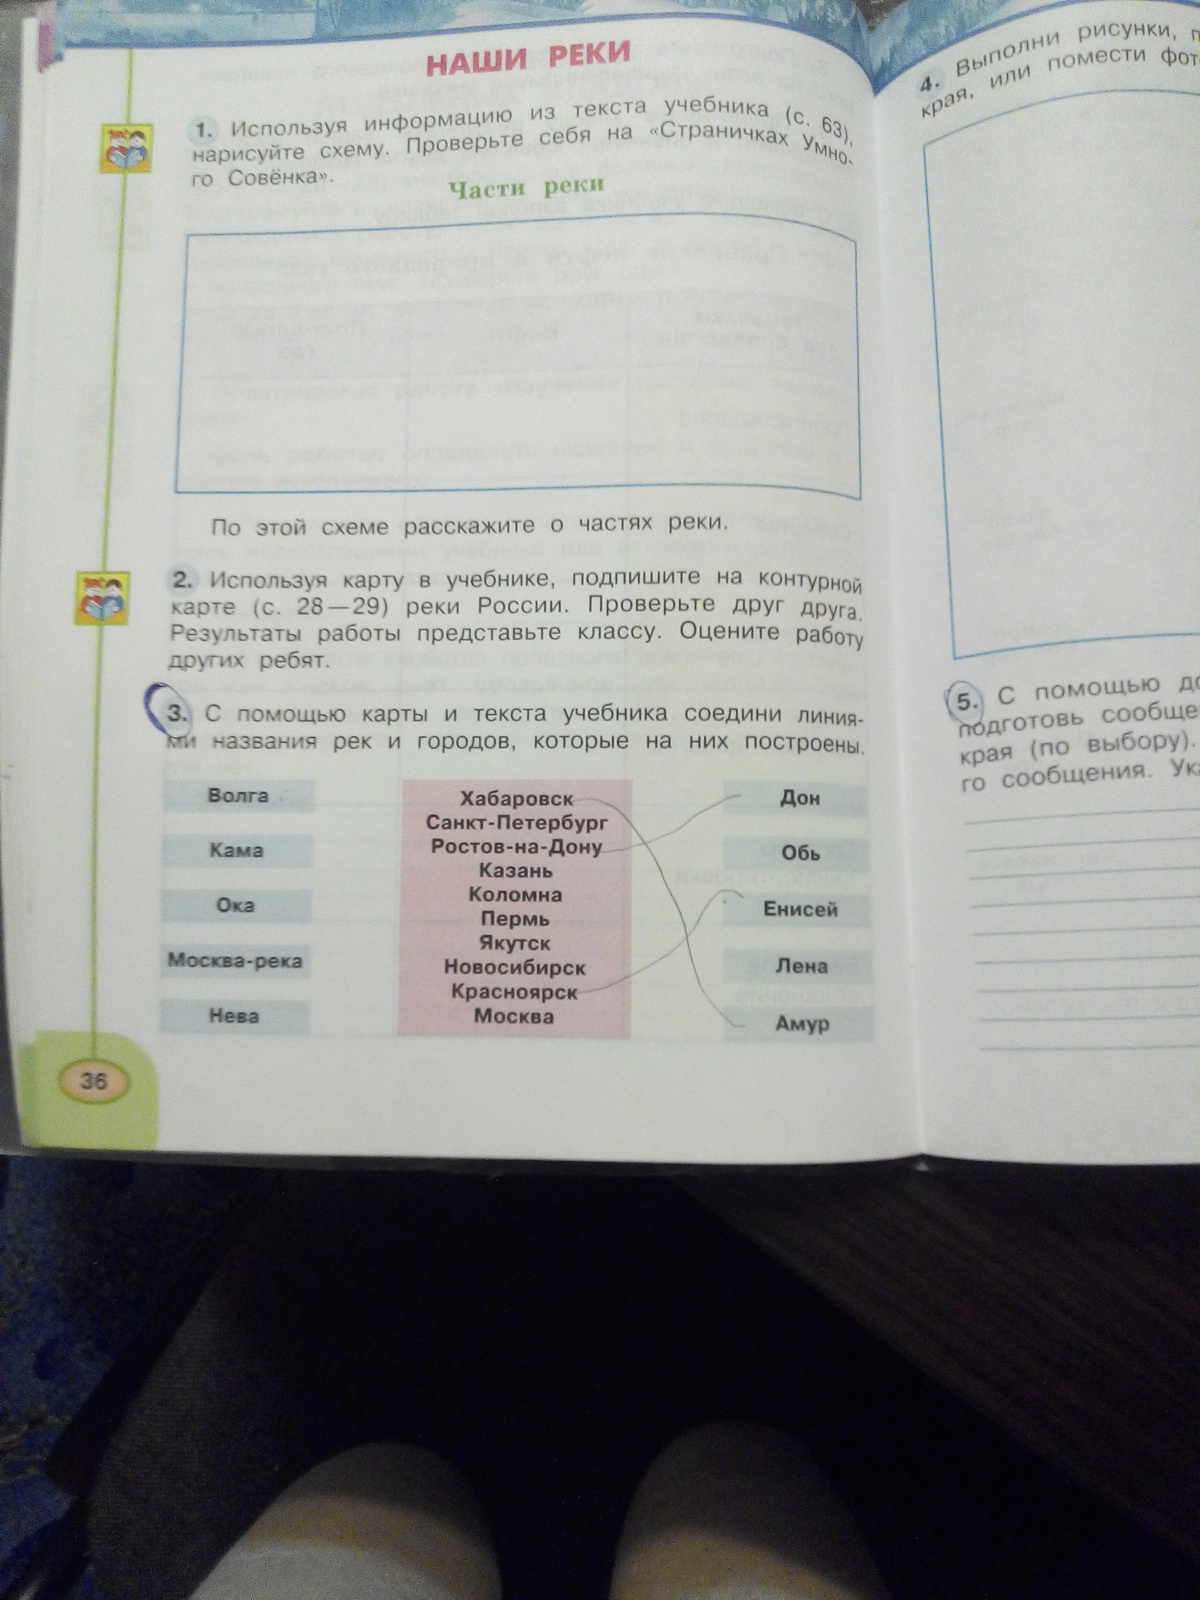 НАШИ РЕКИ
1. Используя информацию из текста учебника (с. 63),
нарисуйте схему. Проверьте себя на «Страничках Умно-
го Совёнка».
Части реки
По этой схеме расскажите о частях реки.
2. Используя карту в учебнике, подпишите на контурной
карте (с. 28—29) реки России. Проверьте друг друга.
Результаты работы представьте классу. Оцените работу
других ребят.
3. С помощью карты и текста учебника соедини линия-
ми названия рек и городов, которые на них построены.
Волга
Кама
Ока
Москва-река
Нева
Хабаровск
Санкт-Петербург
Ростов-на-Дону
Казань
Коломна
Пермь
Якутск
Новосибирск
Красноярск
Москва
Дон
Обь
Енисей
Лена
Амур
36
4. Выполни рисунки,
края, или помести
5. С помощью
подготовь
края (по выбору).
го сообщения.